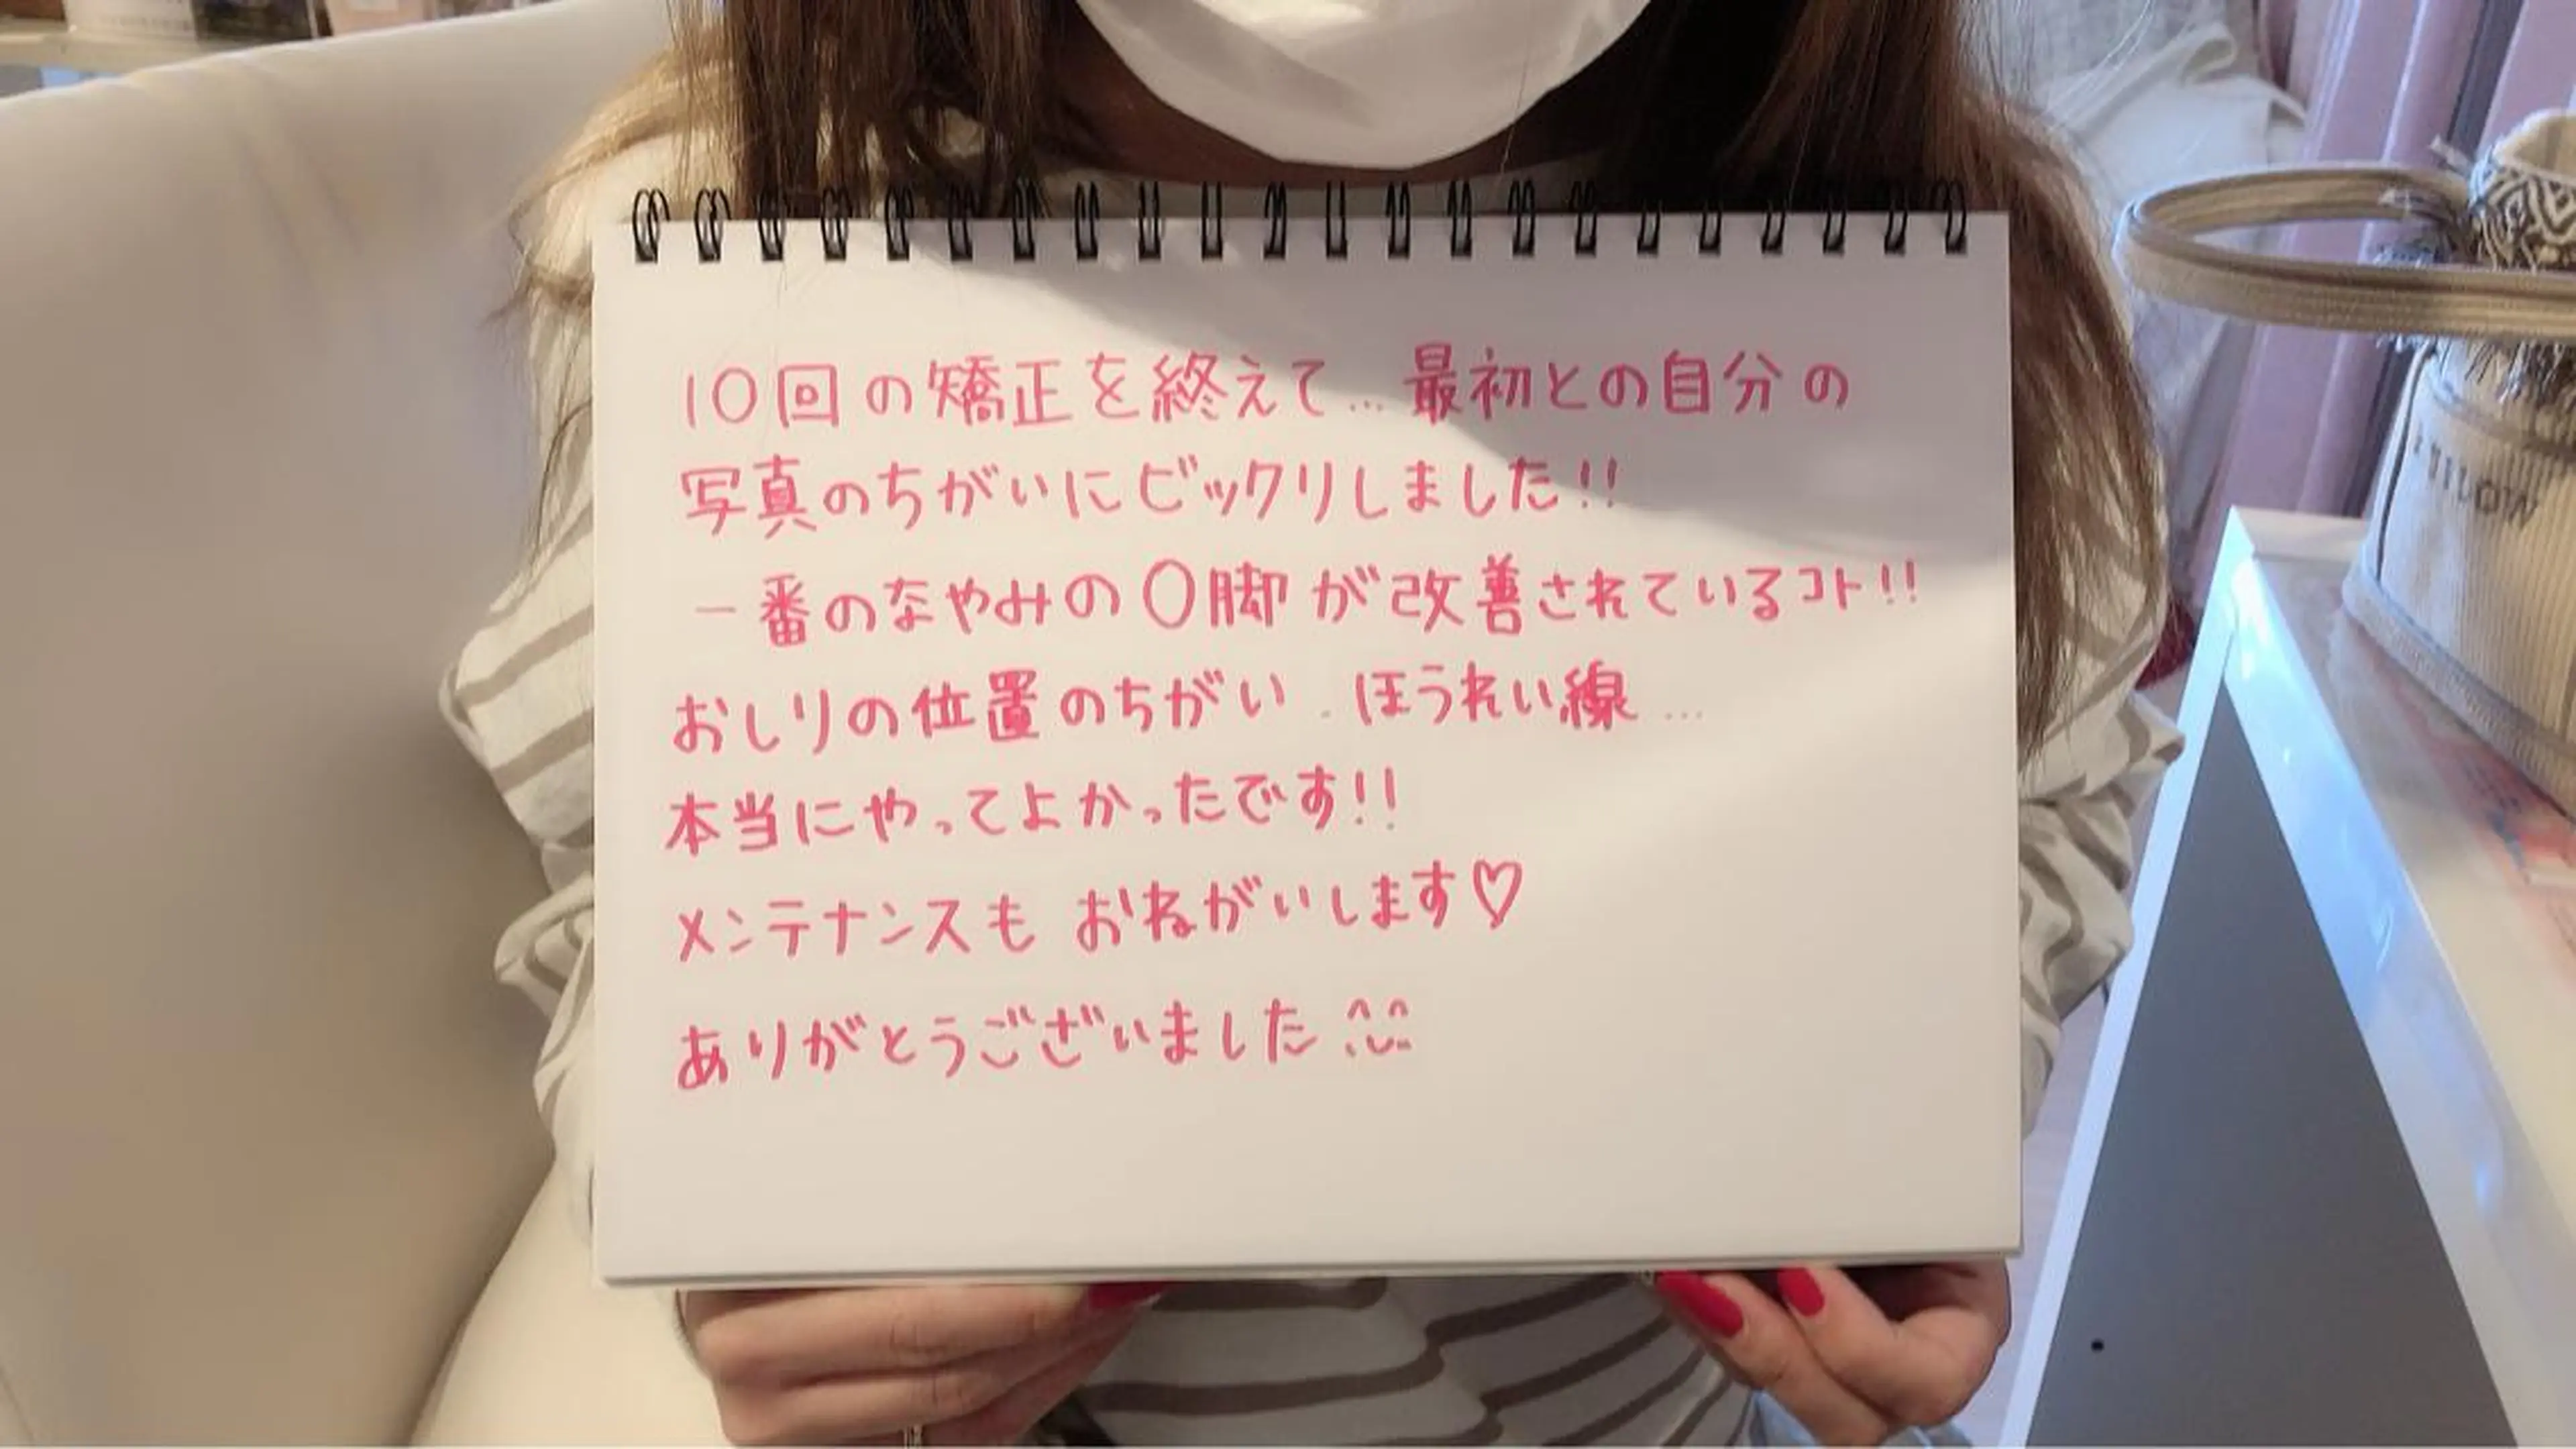 10回の矯正を終えて…最初との自分の
写真のちがいにビックリしました!!
一番のなやみのO脚が改善されているコト!!
おしりの位置のちがい.ほうれい線…
本当にやってよかったです!!
メンテナンスも おねがいします♡
ありがとうございました